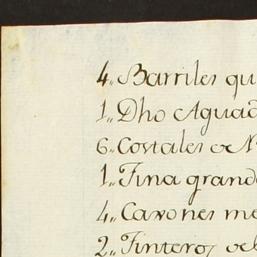 4,, Barriles qu
1,, Dho Aguad
6,, Costales de N
1,, Tina grand
4,, Caxones me
2,, Tinteros de